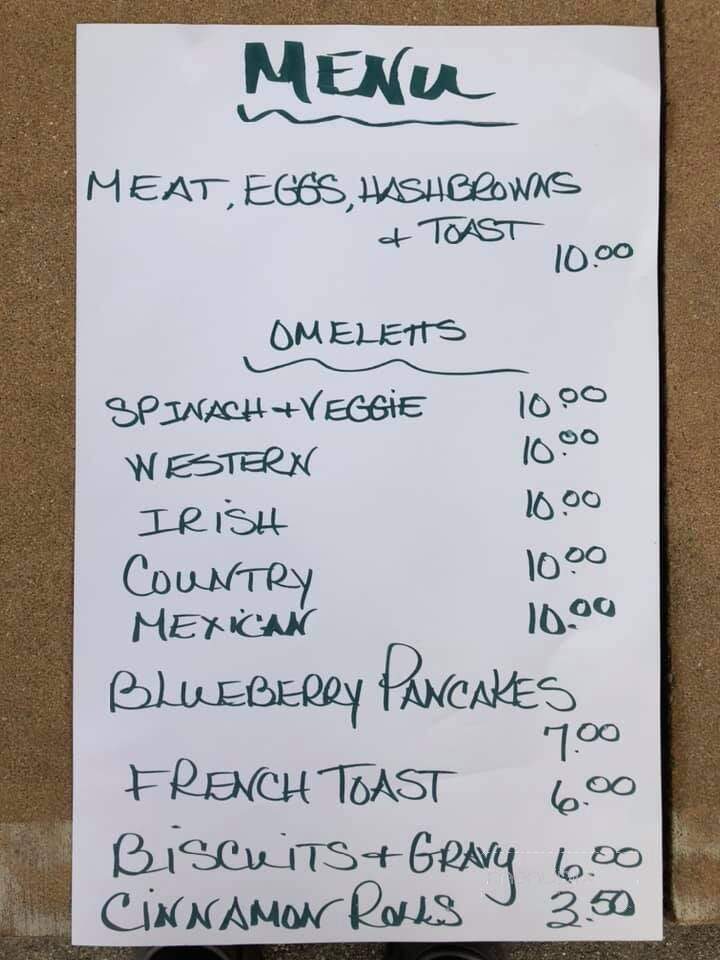 MENU
MEAT, EGGS, HASHBROWNS
+ TOAST
10.00
OMELETTS
SPINACH + VEGGIE 10.00
WESTERN 10.00
IRISH 10.00
COUNTRY 10.00
MEXICAN 10.00
BLUEBERRY PANCAKES
7.00
FRENCH TOAST 6.00
BISCUITS + GRAVY 6.00
CINNAMON ROLLS 3.50